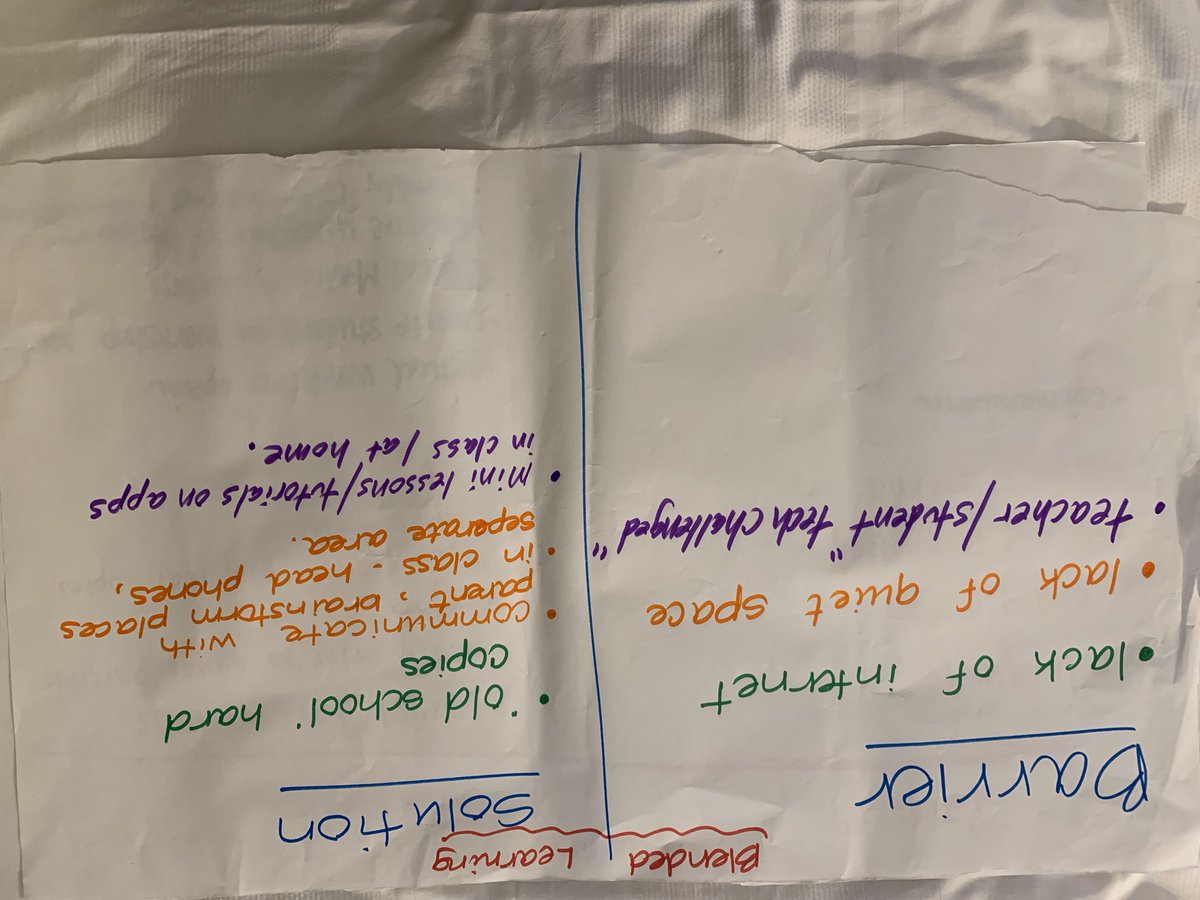 Blended Learning
Barrier
• lack of internet
• lack of quiet space
• teacher/student "tech challenged"
Solution
• 'old school' hard
copies
• communicate with
parent, brainstorm places
• in class - head phones,
separate area.
• Mini lessons/tutorials on apps
in class / at home.